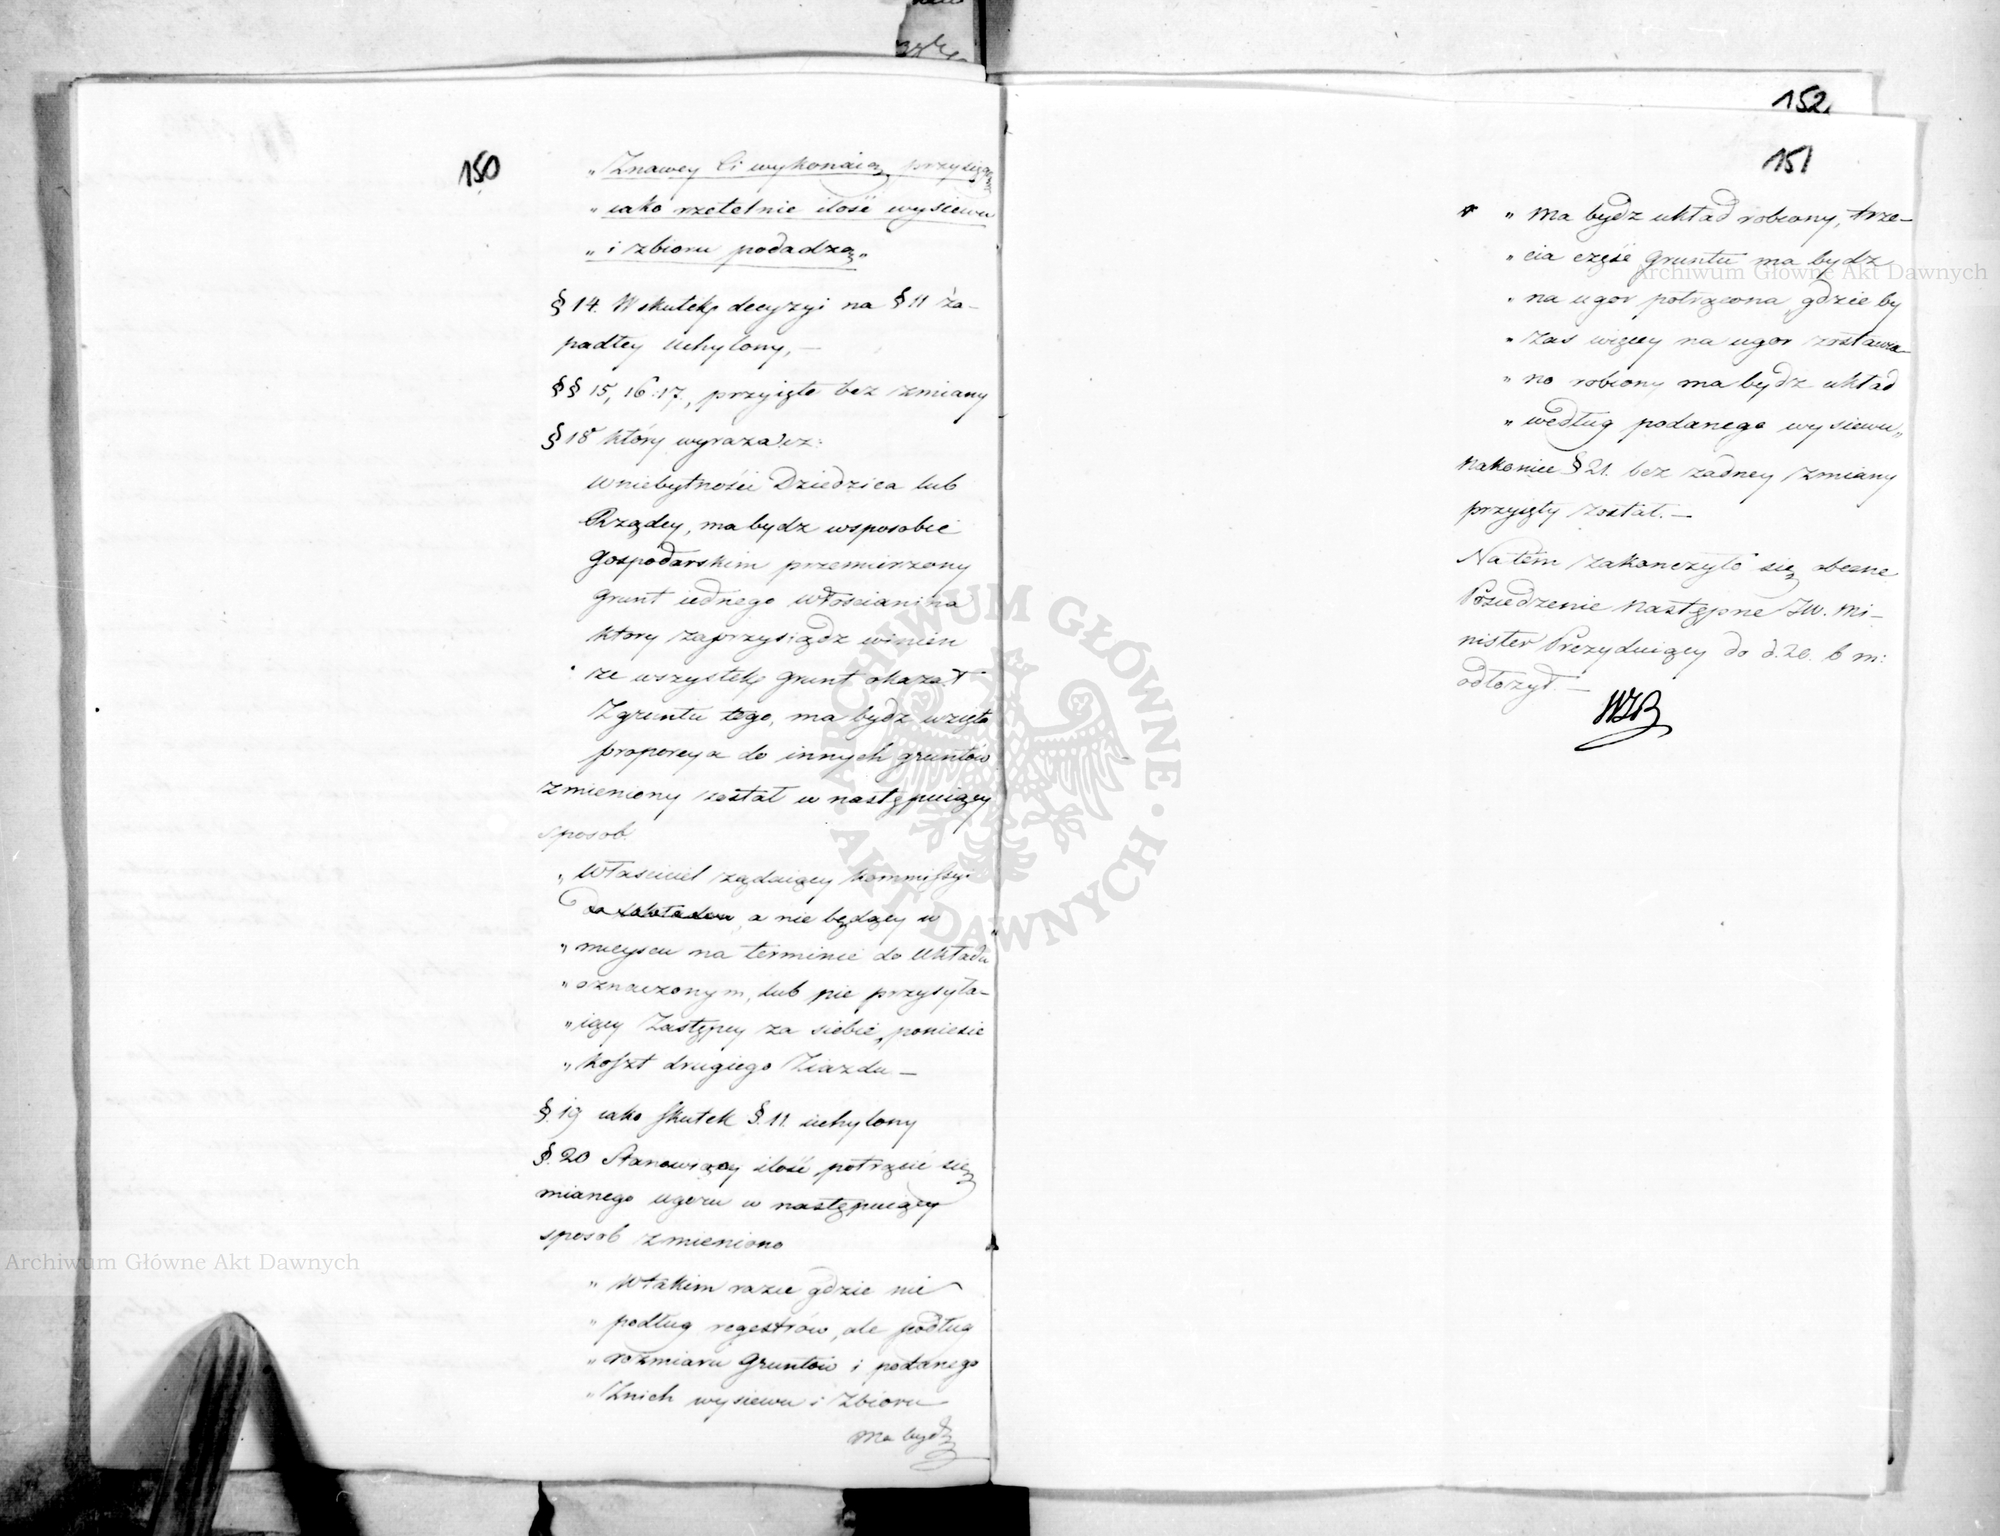 150
„Znawcy Ci wykonaią przysięgę
„iako rzetelnie ilość wysiewu
„i zbioru podadzą„
§ 14. W skutek decyzyi na § 11 za-
padłey uchylony, —
§§ 15, 16. 17., przyięte bez zmiany
§ 18 który wyraza
w niebytności Dziedzica lub
Rządcy, ma bydz w sposobie
gospodarskim przemierzony
grunt iednego włoscianina
ktory zaprzysiądz winien
ze wszystek grunt okazał
Z gruntu tego, ma bydz wzięta
proporcya do innych gruntów
zmieniony został w następuiący
sposob.
„Właściciel ządaiący Kommissyi
a nie będący w
„mieyscu na terminie do Układu
„oznaczonym, lub nie przysyła-
„iący Zastępcy za siebie, poniesie
„koszt drugiego Ziazdu —
§. 19 iako skutek §. 11. uchylony
§. 20 Stanowiący ilość potrącić się
mianego ugoru w następuiący
sposob zmieniono
„W takim razie gdzie nie
„podług regestrów, ale podług
„rozmiaru Gruntów i podanego
„Znich wysiewu i Zbioru
ma bydź
152
151
„ma bydz układ robiony, trze-
„cia część gruntu ma bydz
„na ugor potrącona, gdzie by
„zas więcey na ugor zostawia-
„no robiony ma bydz układ
„według podanego wysiewu„
Nakoniec § 21. bez zadney zmiany
przyięty został. —
Na tem zakonczyło się obecne
Posiedzenie następne JW. Mi-
nister Prezyduiący do d. 20. b m:
odłozył. —
Archiwum Główne Akt Dawnych
ARCHIWUM GŁÓWNE · AKT DAWNYCH ·
Archiwum Główne Akt Dawnych